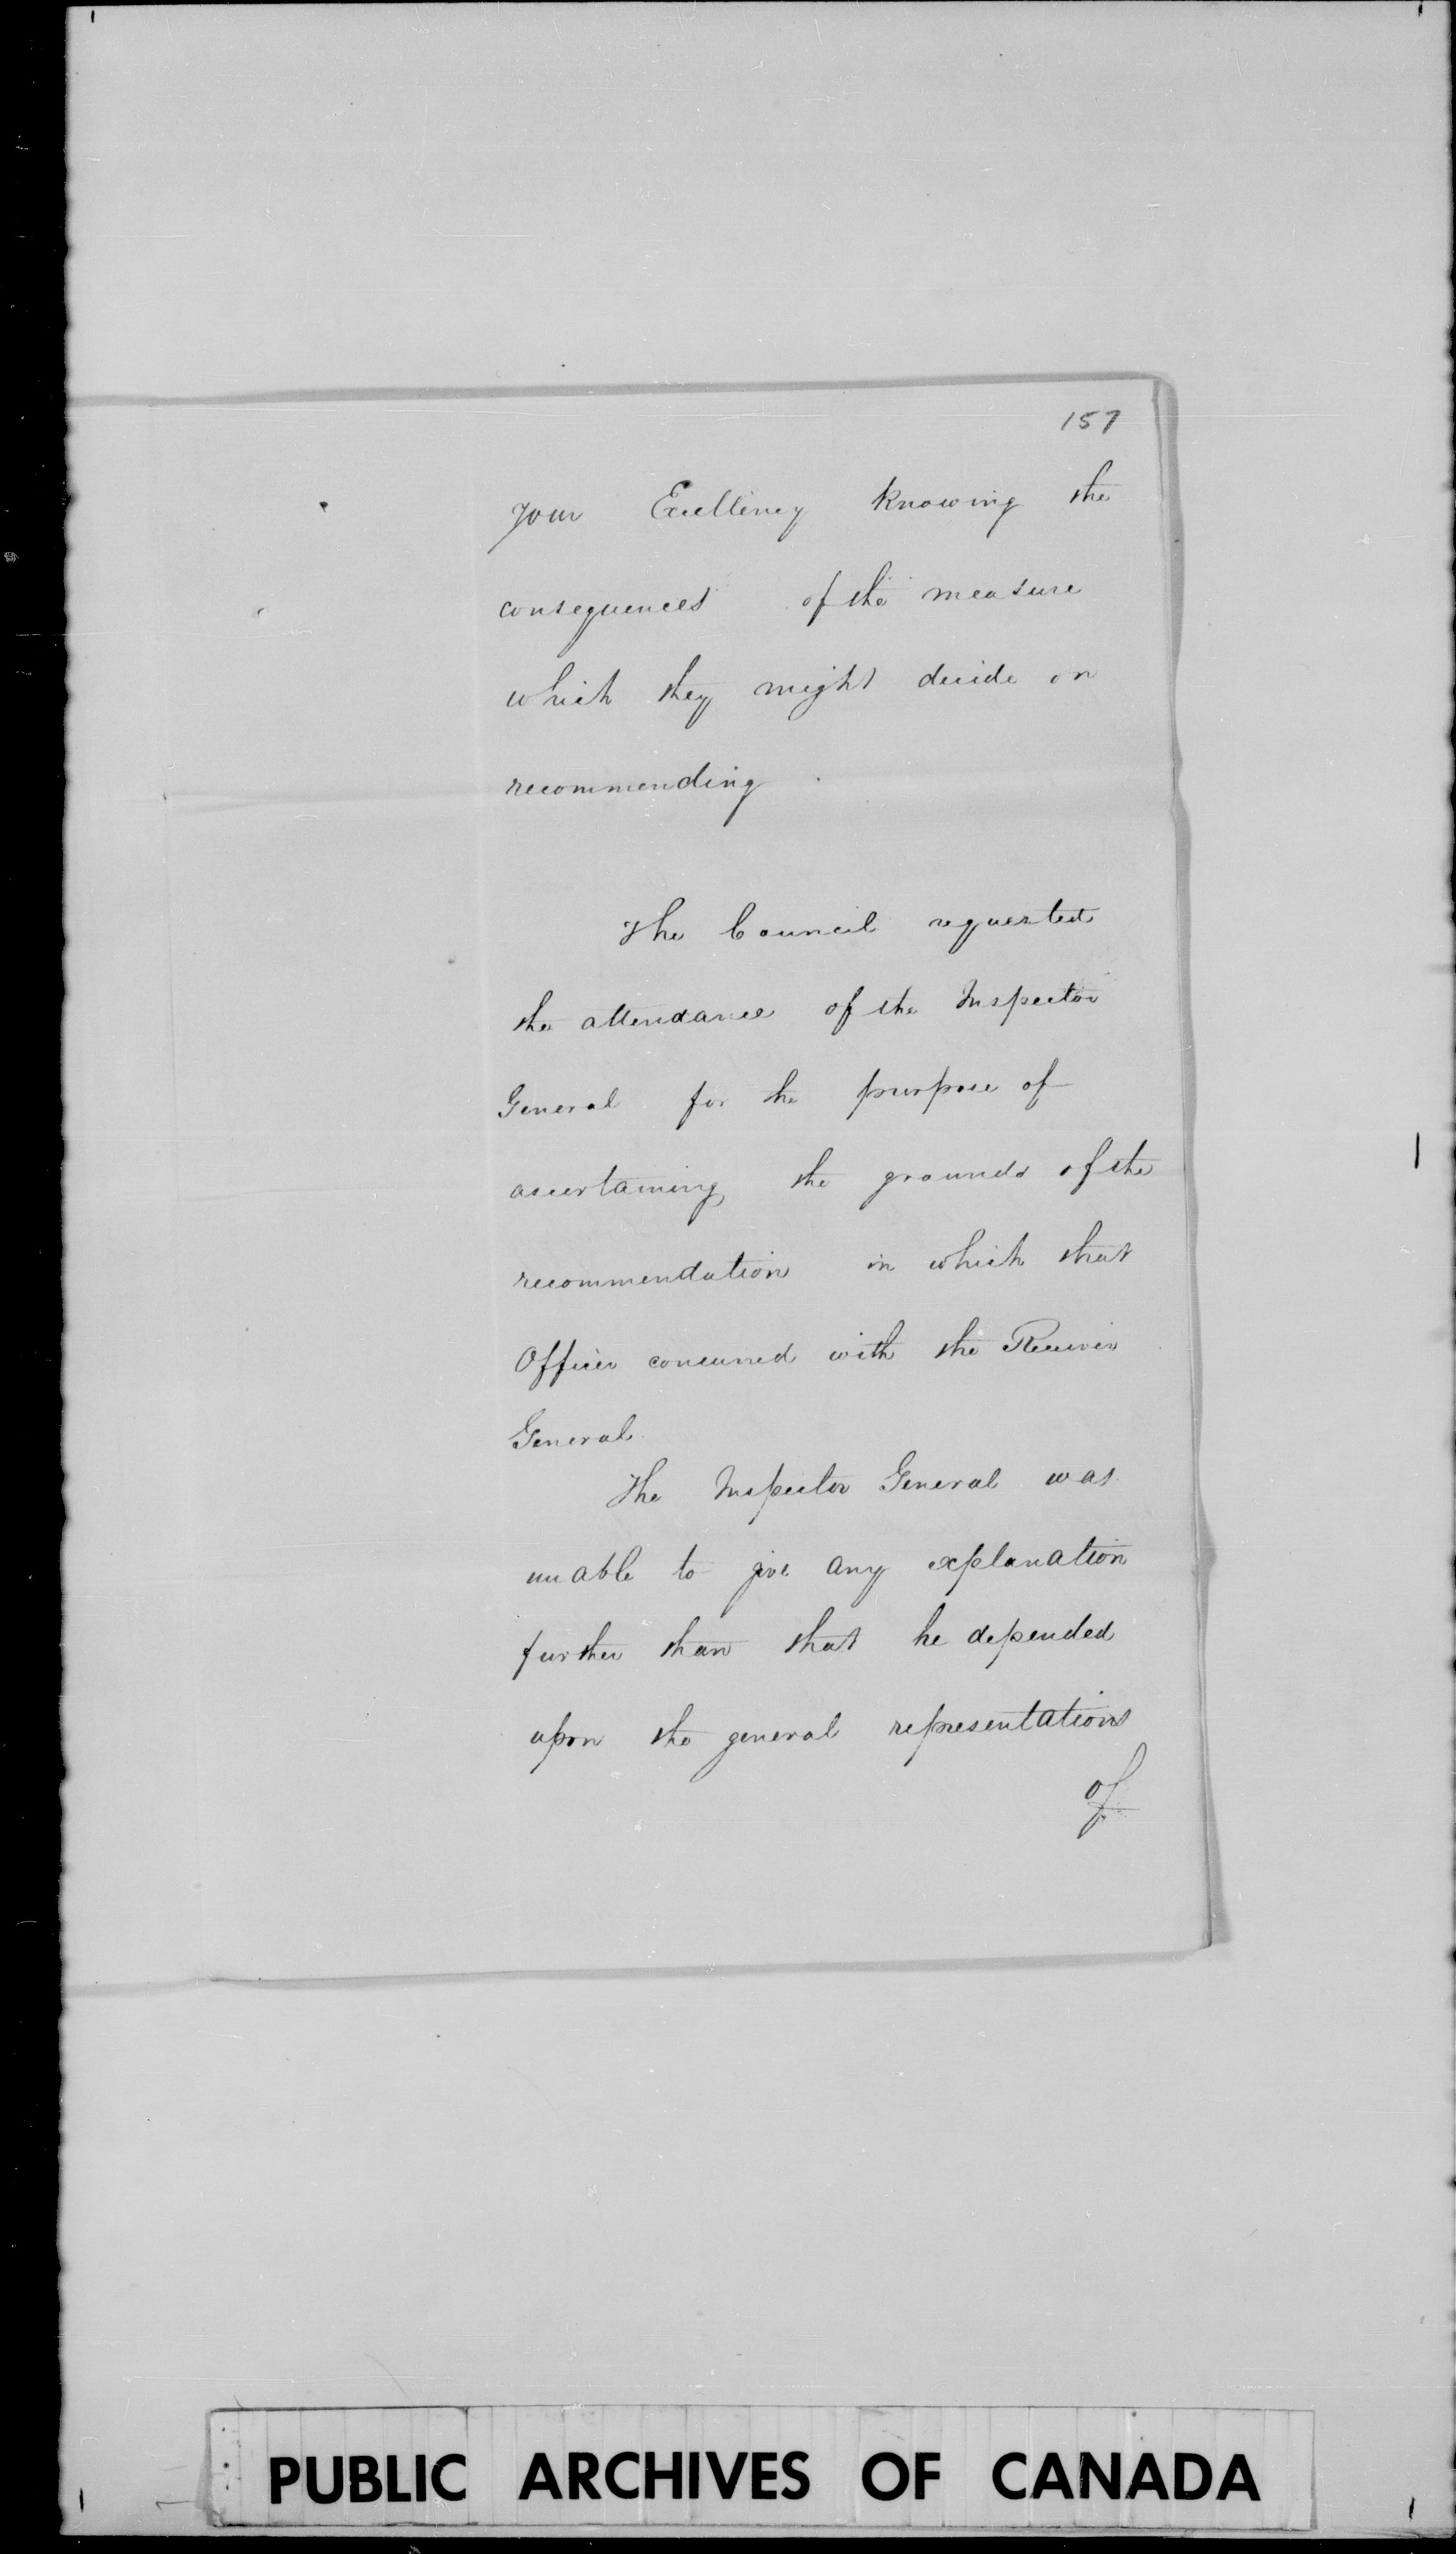 157
your Excellency knowing the
consequences of the measure
which they might decide on
recommending.
The Council requested
the attendance of the Inspector
General for the purpose of
ascertaining the grounds of the
recommendation in which that
Officer concurred with the Receiver
General
The Inspector General was
unable to give any explanation
further than that he depended
upon the general representations
of
PUBLIC ARCHIVES OF CANADA